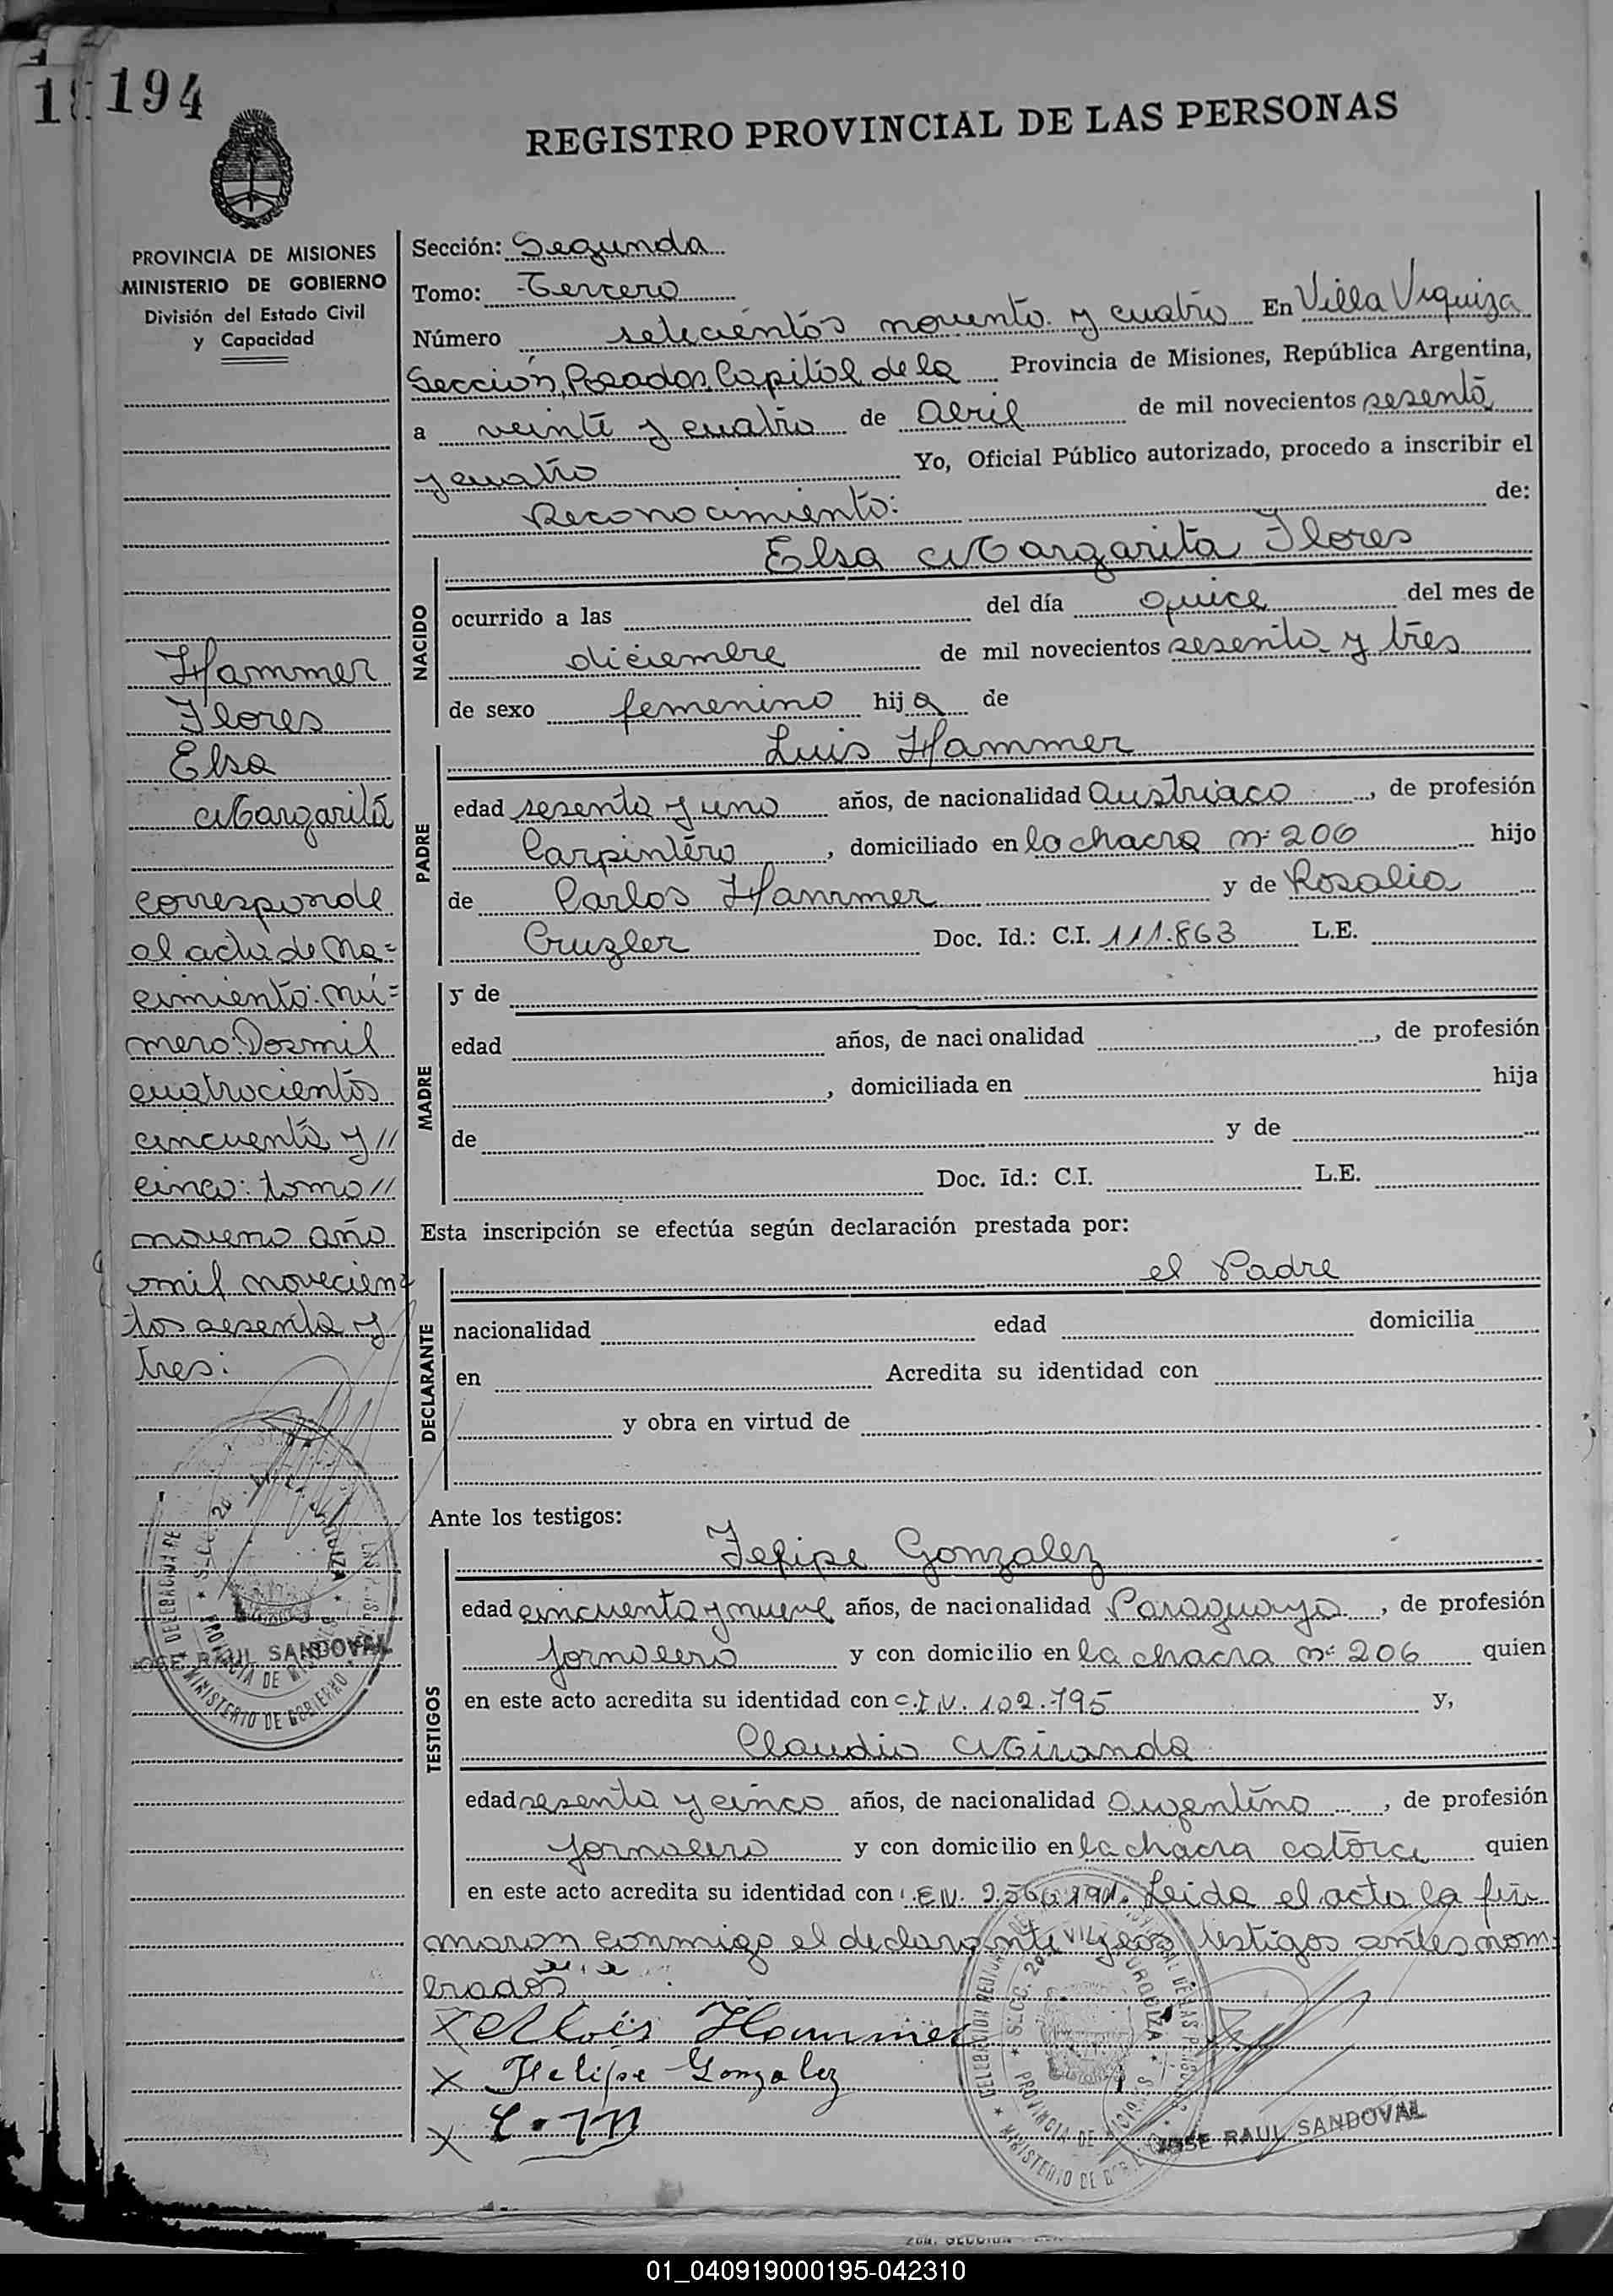 194
REGISTRO PROVINCIAL DE LAS PERSONAS
PROVINCIA DE MISIONES
MINISTERIO DE GOBIERNO
División del Estado Civil
y Capacidad
Hammer
Flores
Elsa
Margarita
corresponde
al acta de Na=
cimiento: nú=
mero: Dosmil
cuatrocientos
cincuenta y //
cinco: tomo //
noveno año
mil novecien=
tos sesenta y
tres:
JOSE RAUL SANDOVAL
Sección: Segunda
Tomo: Tercero
Número setecientos noventa y cuatro En Villa Urquiza
Sección, Posadas, Capital de la Provincia de Misiones, República Argentina,
a veinte y cuatro de abril de mil novecientos sesenta
y cuatro Yo, Oficial Público autorizado, procedo a inscribir el
Reconocimiento: de:
NACIDO
Elsa Margarita Flores
ocurrido a las del día quice del mes de
diciembre de mil novecientos sesenta y tres
de sexo femenino hija de
PADRE
Luis Hammer
edad sesenta y uno años, de nacionalidad Austriaco, de profesión
Carpintero, domiciliado en la chacra nº 206 hijo
de Carlos Hammer y de Rosalia
Cruzler Doc. Id.: C.I. 111.863 L.E.
MADRE
y de
edad años, de nacionalidad , de profesión
, domiciliada en hija
de y de
Doc. Id.: C.I. L.E.
Esta inscripción se efectúa según declaración prestada por:
DECLARANTE
el Padre
nacionalidad edad domicilia
en Acredita su identidad con
y obra en virtud de
Ante los testigos:
TESTIGOS
Felipe Gonzalez
edad cincuenta y nueve años, de nacionalidad Paraguayo, de profesión
jornalero y con domicilio en la chacra nº 206 quien
en este acto acredita su identidad con C.I N. 102.795 y,
Claudio Miranda
edad sesenta y cinco años, de nacionalidad Argentino, de profesión
jornalero y con domicilio en la chacra catorce quien
en este acto acredita su identidad con Leida el acta la fir
maron conmigo el declarante y los testigos antes nom
brados
x Alois Hammer
x Felipe Gonzalez
x C. M
JOSE RAUL SANDOVAL
01_040919000195-042310